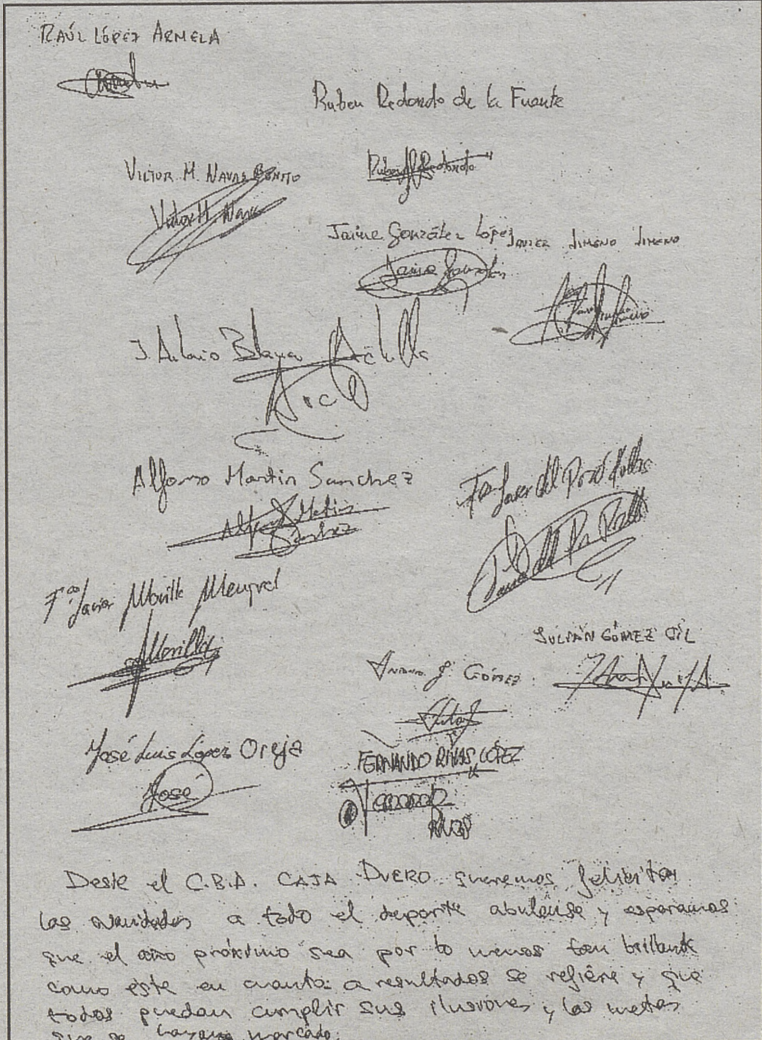 RAÚL LÓPEZ ARMELA
Ruben Redondo de la Fuente
VICTOR M. NAVAS BENITO
Victor M. Navas
Ruben Redondo
Jaime González López
JAVIER JIMENO JIMENO
Jaime González
J. Blanco
Alfonso Martin Sanchez
Alfonso Martin
Sanchez
Fco Javier del Pozo
Javier del Pozo
Fco Javier Morilla
Morilla
JULIÁN GÓMEZ GIL
J. GÓMEZ
José Luis López Oreja
José
FERNANDO RIVAS LÓPEZ
Fernando
RIVAS
Desde el C.B.A. CAJA DUERO queremos felicitar
las navidades a todo el deporte abulense y esperamos
que el año próximo sea por lo menos tan brillante
como este en cuanto a resultados se refiere y que
todos puedan cumplir sus ilusiones y las metas
que se hayan marcado.